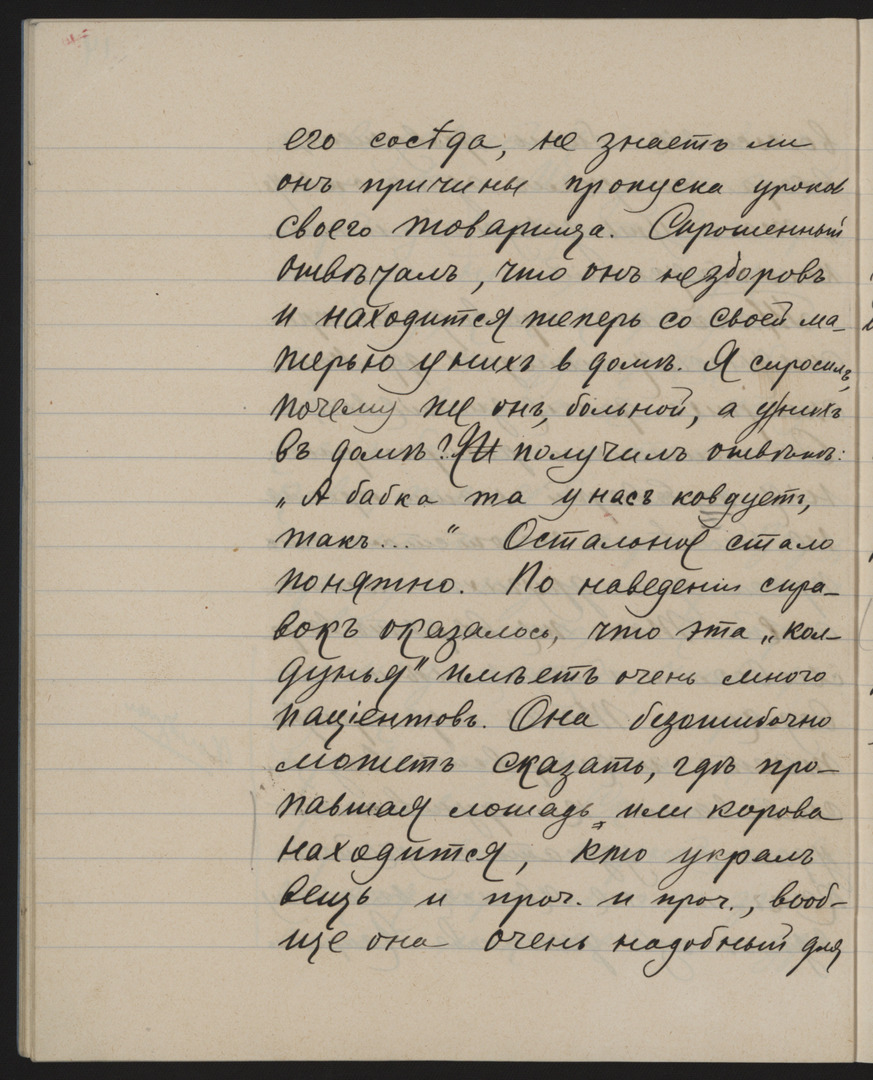 его сосѣда, не знаетъ ли
онъ причины пропуска уроков
своего товарища. Спрошенный
отвѣчалъ, что онъ нездоровъ
и находится теперь со своей ма-
терью у нихъ в домѣ. Я спросилъ,
почему же онъ, больной, а у нихъ
въ домѣ? И получилъ отвѣтъ:
„А бабка та у насъ ковдуетъ,
такъ... " Остальное стало
понятно. По наведеніи спра-
вокъ оказалось, что эта „кол-
дунья" имѣетъ очень много
паціентовъ. Она безошибочно
можетъ сказать, гдѣ про-
павшая лошадь или корова
находится, кто укралъ
вещь и проч. и проч., вооб-
ще она очень надобный для